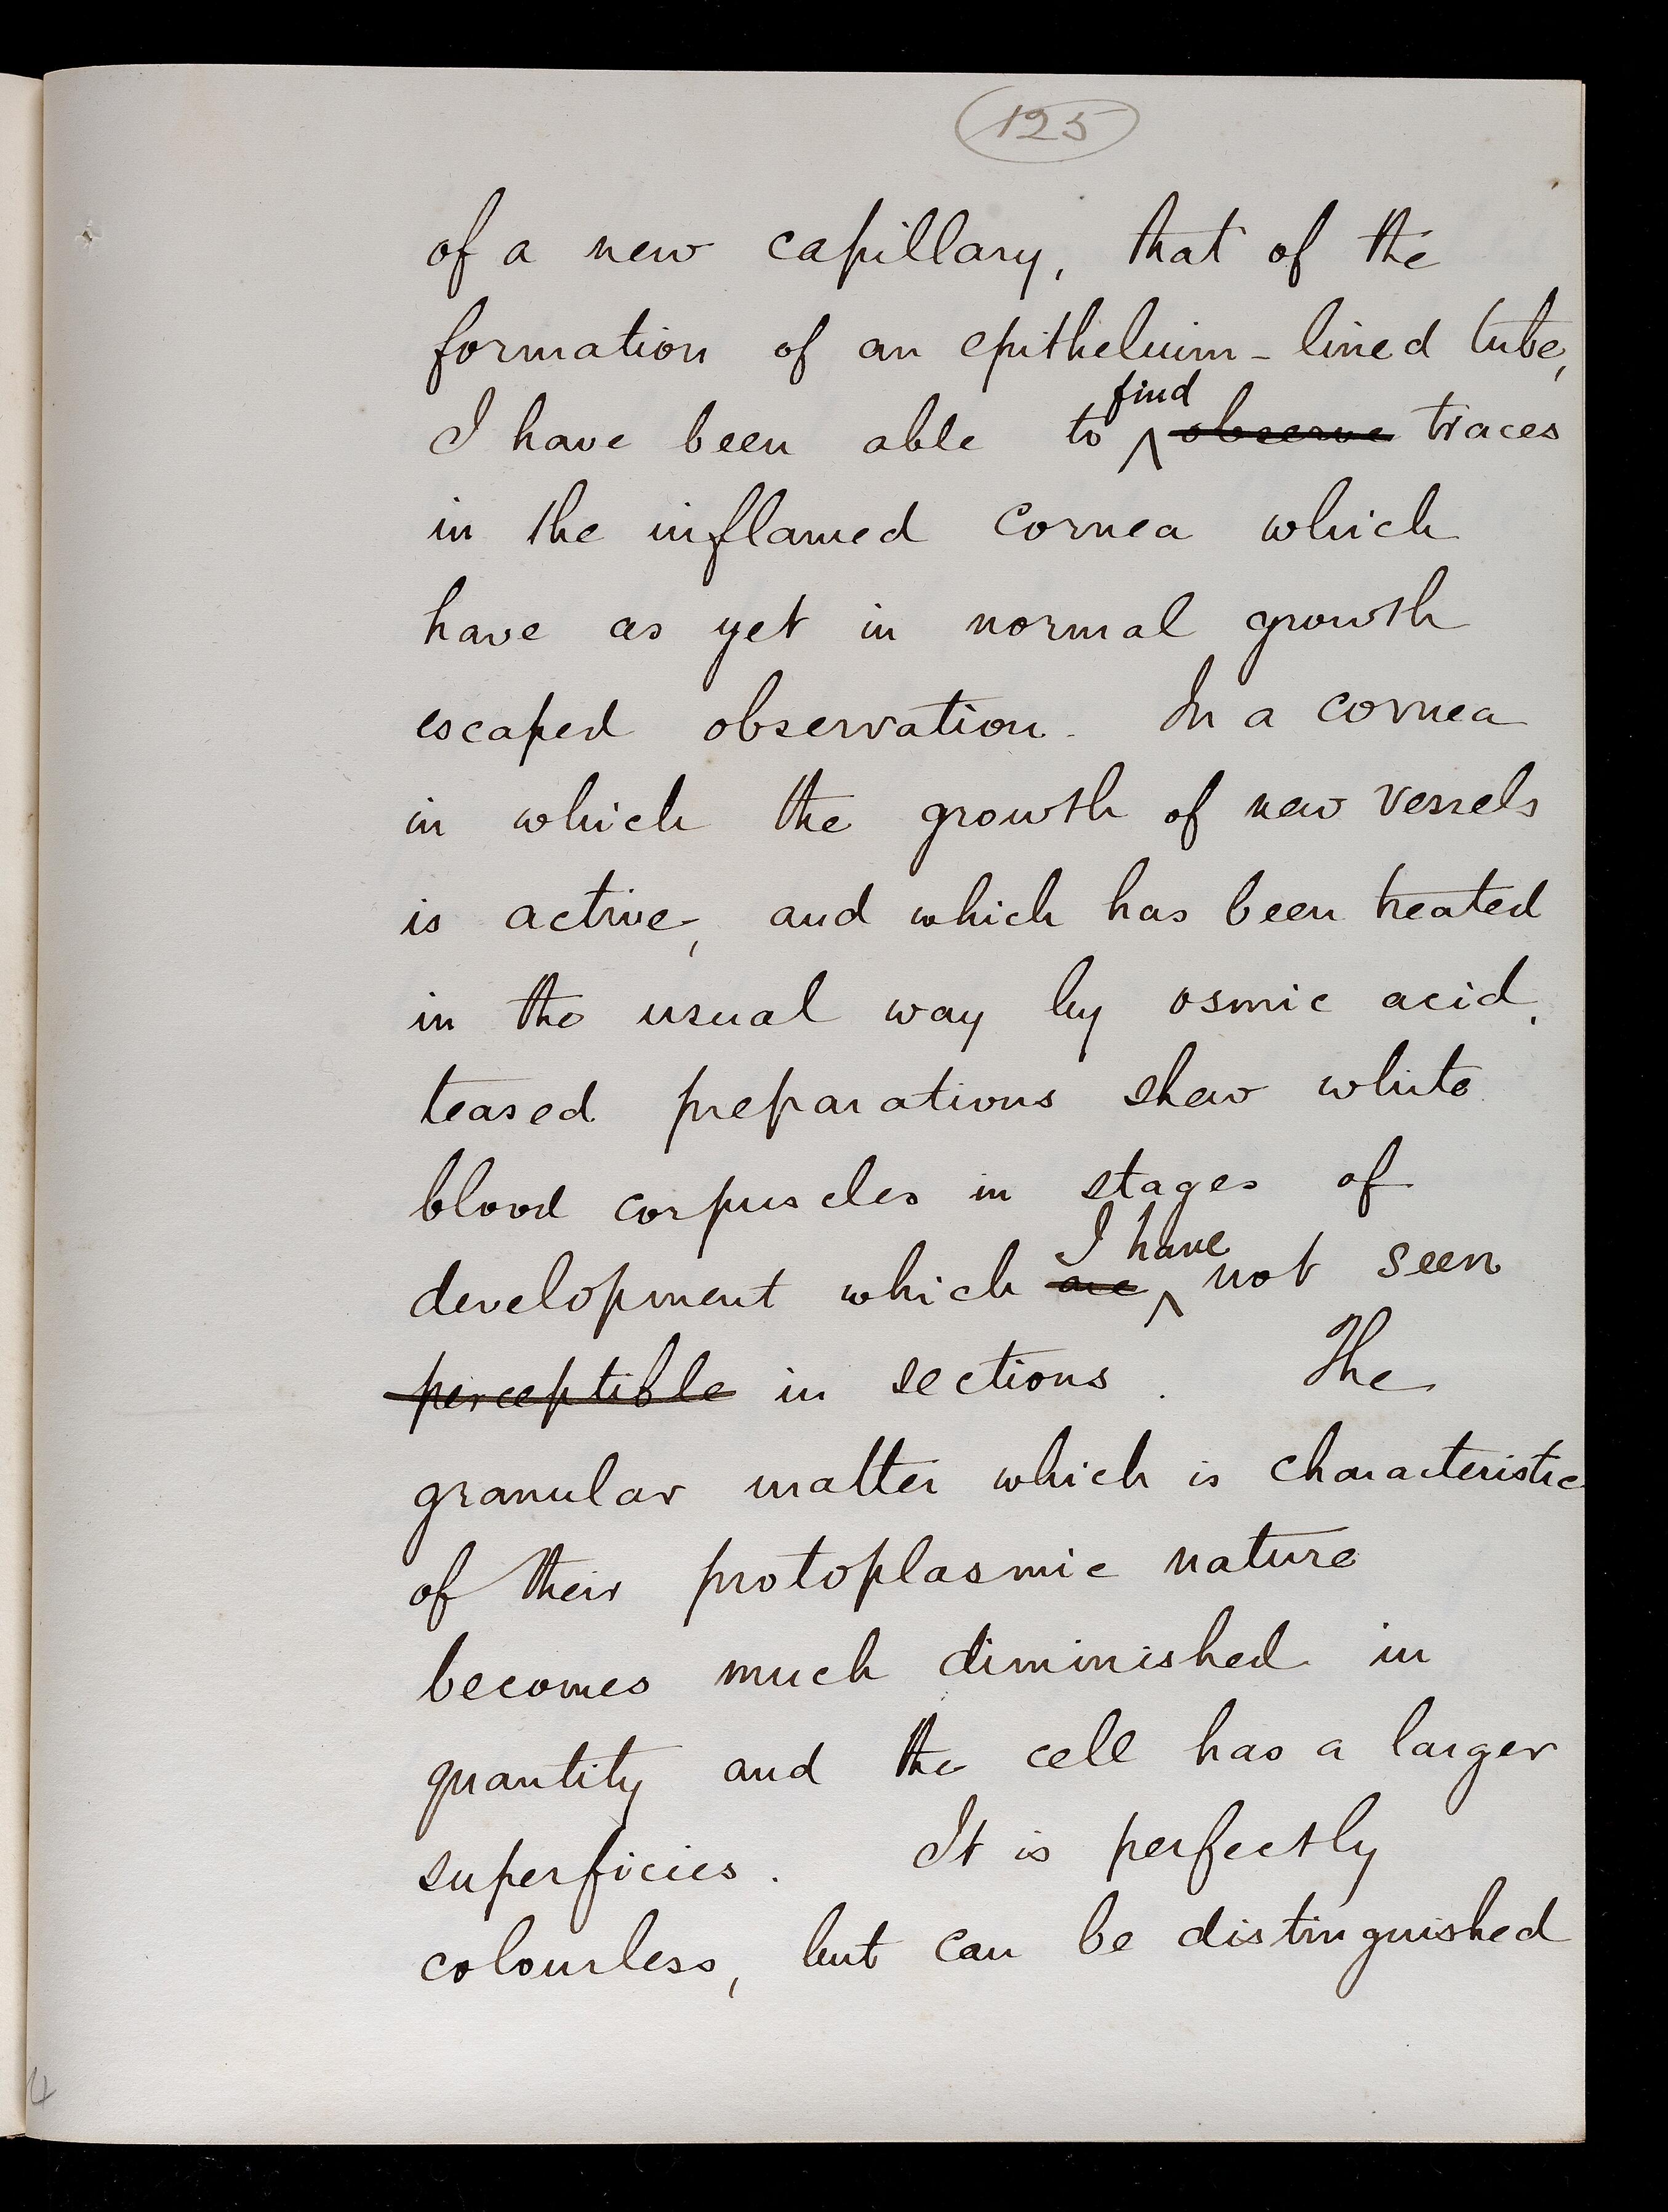 125
of a new capillary, that of the
formation of an epitheluim-lined tube,
I have been able to find observe traces
in the inflamed cornea which
have as yet in normal growth
escaped observation. In a cornea
in which the growth of new vessels
is active, and which has been treated
in the usual way by osmic acid,
teased preparations shew white
blood corpuscles in stages of
development which are I have not seen
perceptible in sections. The
granular matter which is characteristic
of their protoplasmic nature
becomes much diminished in
quantity and the cell has a larger
superficies. It is perfectly
colourless, but can be distinguished